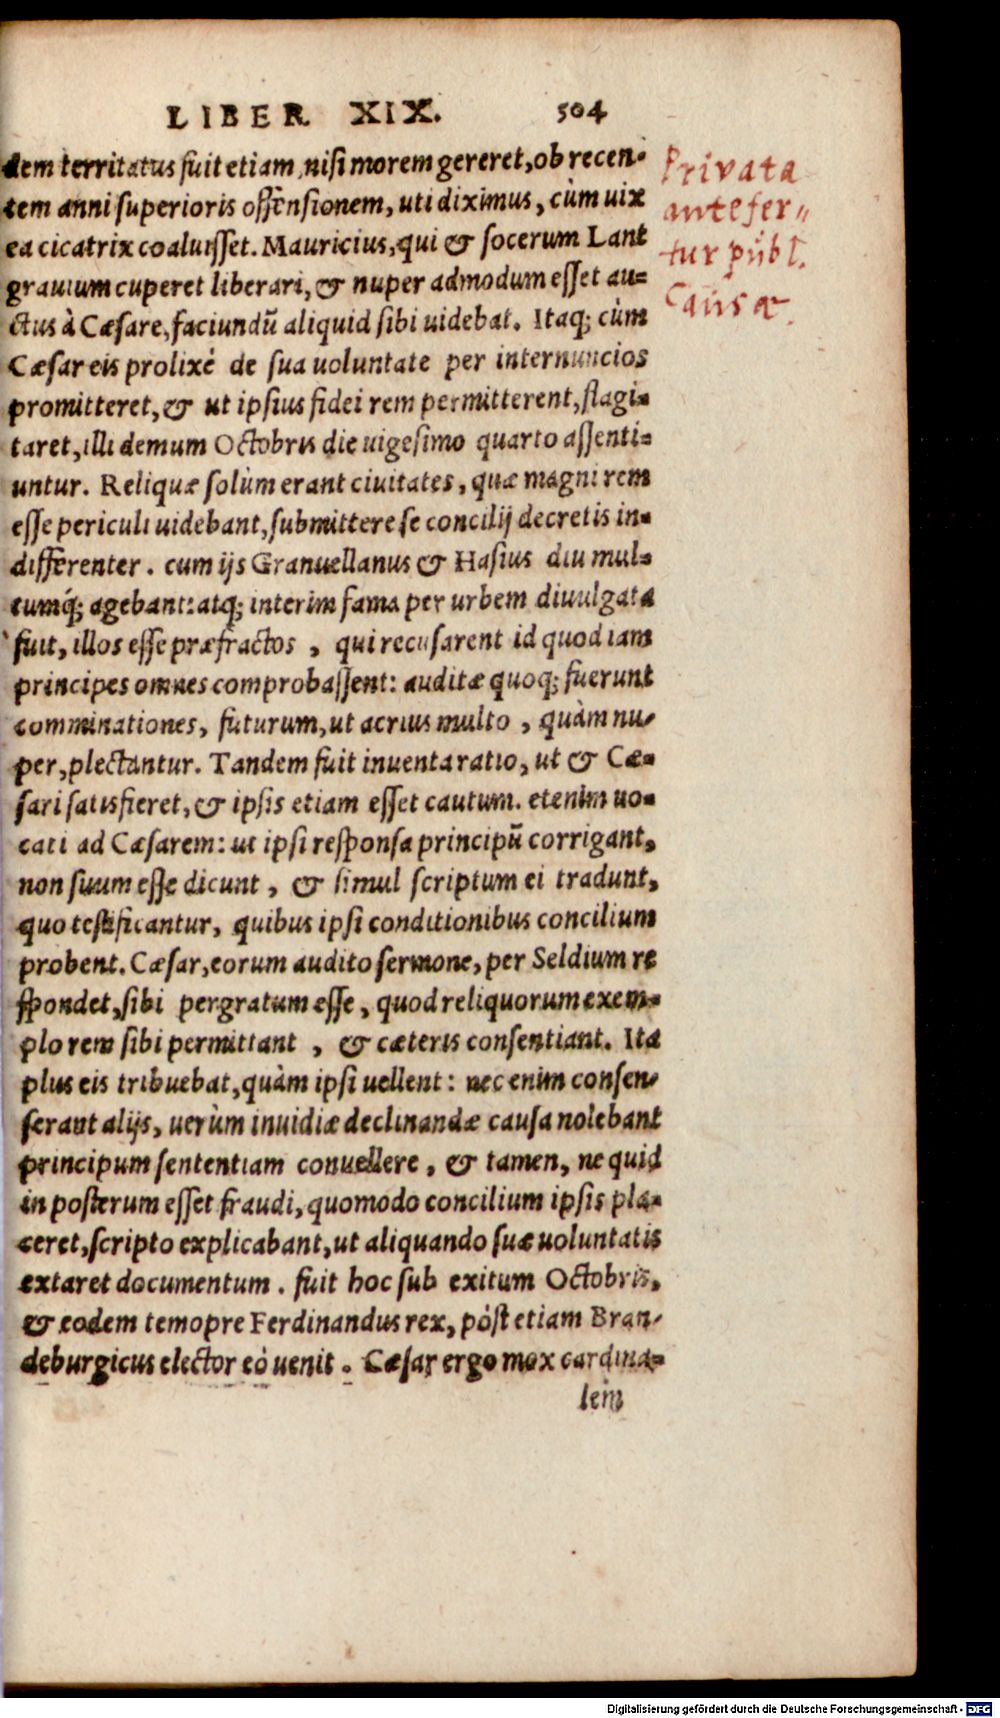 LIBER XIX. 504
dem territatus fuit etiam nisi morem gereret, ob recen-
tem anni superioris offensionem, uti diximus, cùm uix
ea cicatrix coaluisset. Mauricius, qui & socerum Lant
grauium cuperet liberari, & nuper admodum esset au-
ctus à Cæsare, faciundũ aliquid sibi uidebat. Itaq; cùm
Cæsar eis prolixè de sua uoluntate per internuncios
promitteret, & ut ipsius fidei rem permitterent, flagi-
taret, illi demum Octobris die uigesimo quarto assenti-
untur. Reliquæ solùm erant ciuitates, quæ magni rem
esse periculi uidebant, submittere se concilij decretis in-
differenter. cum ijs Granuellanus & Hasius diu mul-
tumq́; agebant: atq; interim fama per urbem diuulgata
fuit, illos esse præfractos, qui recusarent id quod iam
principes omnes comprobassent: auditæ quoq; fuerunt
comminationes, futurum, ut acrius multo, quàm nu-
per, plectantur. Tandem fuit inuenta ratio, ut & Cæ-
sari satisfieret, & ipsis etiam esset cautum. etenim uo-
cati ad Cæsarem: ut ipsi responsa principũ corrigant,
non suum esse dicunt, & simul scriptum ei tradunt,
quo testificantur, quibus ipsi conditionibus concilium
probent. Cæsar, eorum audito sermone, per Seldium re
spondet, sibi pergratum esse, quod reliquorum exem-
plo rem sibi permittant, & cæteris consentiant. Ita
plus eis tribuebat, quàm ipsi uellent: nec enim consen-
serant alijs, uerùm inuidiæ declinandæ causa nolebant
principum sententiam conuellere, & tamen, ne quid
in posterum esset fraudi, quomodo concilium ipsis pla-
ceret, scripto explicabant, ut aliquando suæ uoluntatis
extaret documentum. fuit hoc sub exitum Octobris,
& eodem temopre Ferdinandus rex, pòst etiam Bran-
deburgicus elector eò uenit. Cæsar ergo mox cardina-
lem
Privata
antefer-
tur publ.
causæ.
Digitalisierung gefördert durch die Deutsche Forschungsgemeinschaft - DFG